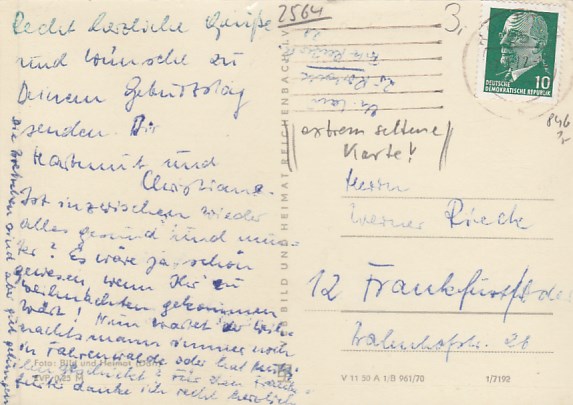 Recht herzliche Grüße
und Wünsche zu
Deinem Geburtstag
senden Dir
Hartmut und
Christiane.
Ist inzwischen wieder
alles gesund und mun-
ter? Es wäre ja schön
gewesen wenn Ihr zu
Weihnachten gekommen
wärt! Nun wartet der Weih-
nachtsmann immer noch
in Fahrenwalde oder hat
für den
danke ich recht herzlich
Die sind aber gut gelungen
Foto: Bild und Heimat
EVP 0,25 M
BILD UND HEIMAT REICHENBACH
2564
3,
DEUTSCHE
DEMOKRATISCHE REPUBLIK
10
846
extrem seltene
Karte!
Herrn
Werner Rieck
12 Frankfurt/Oder
Bahnhofstr. 26
V 11 50 A 1/B 961/70
1/7192